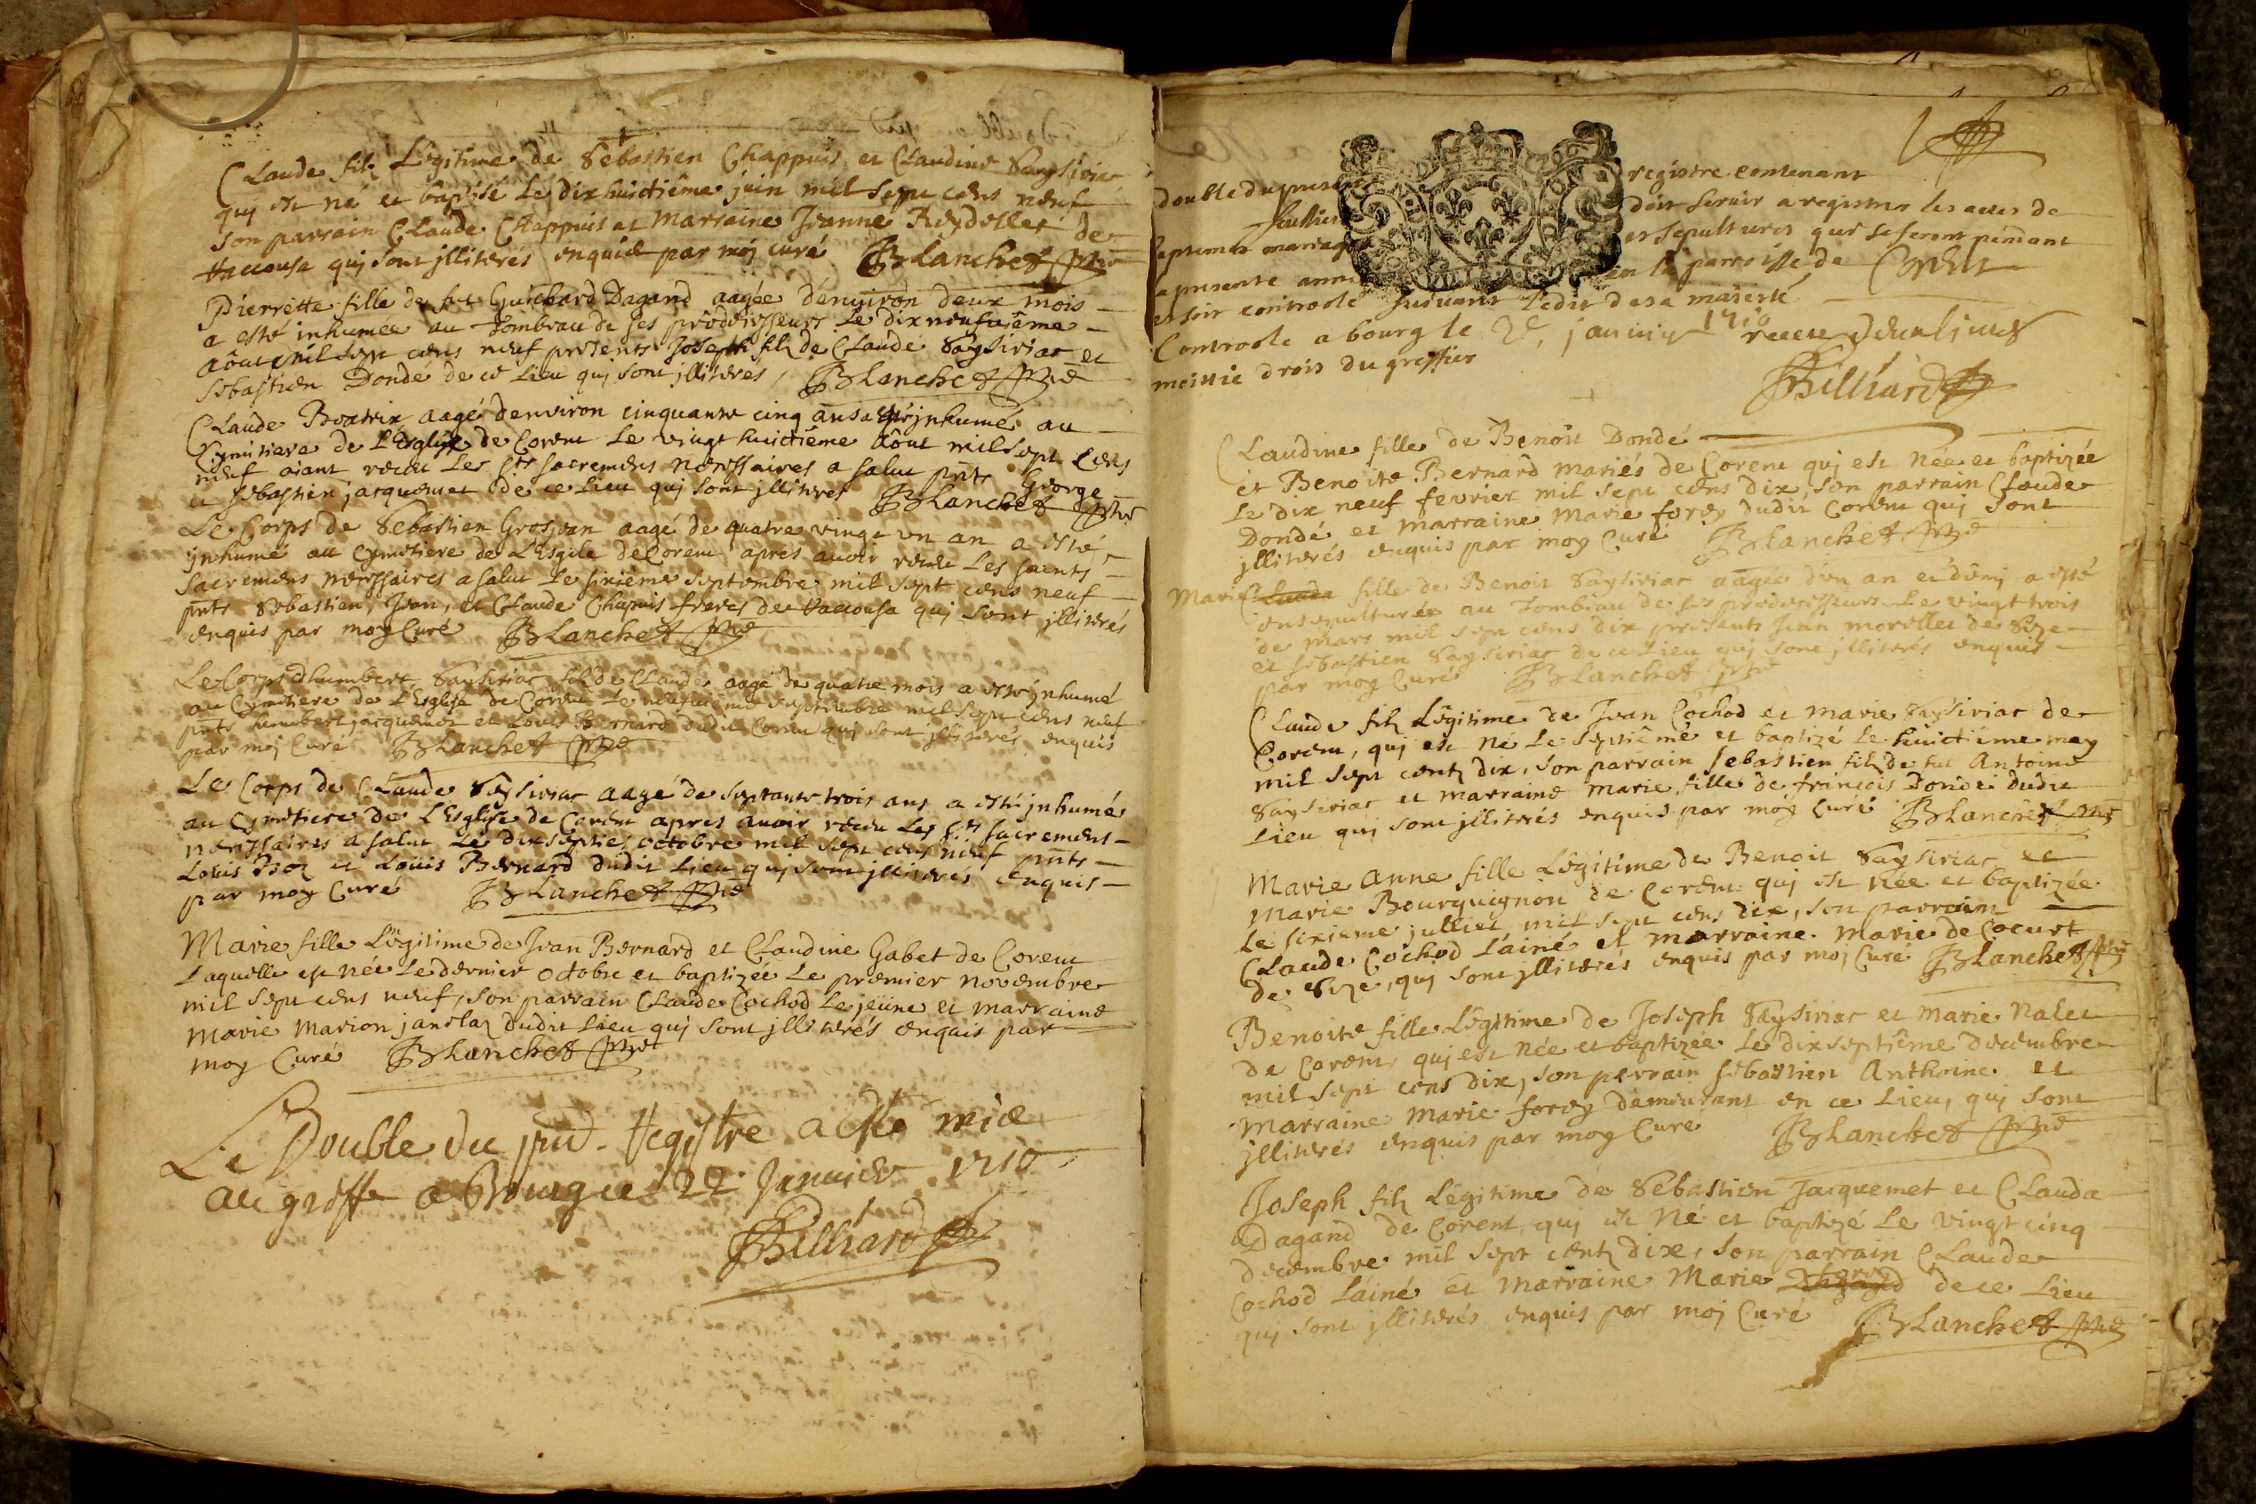 Claude filz Légitime de Sébastien Chappuis et Claudine Saysiriac
quj est né et baptisé Le dix huictième juin mil sept cens neuf
son parrain Claude Chappuis et marraine Jeanne Reydellet de
Haccousa quj sont jllitérés enquis par moj curé Blanchet ptre
Pierrette fille de fut Guichard Dagand aagée d'enuiron deux mois
a esté inhumee au Tombeau de ses prédécesseurs Le dix neufuième
Aôut mil sept cens neuf présents Joseph filz de Claude Saysiriac et
Sébastien Dondé de ce Lieu quj sont jllitérés, Blanchet ptre
Claude Beatrix aagé denviron cinquante cinq ans a esté jnhumé au
Cymitiere de L'Esglise de Corent Le vingt huictième Aôut mil sept cens
neuf aiant receu Les sts sacremens nécessaires a salut pnts George
et Sébastien jacquemet de ce Lieu quj sont jllitérés Blanchet ptre
Le Corps de Sébastien Grosjean aagé de quatre vingt vn an a esté
jnhumé au Cymetiere de L'Esglise de Corent apres auoir receu Les saints
sacremens nécessaires a salut Le sixième septembre mil sept cens neuf
pnts Sébastien, Jean, et Claude Chapuis freres de Haccousa quj sont jllitérés
enquis par moy Curé Blanchet ptre
Le Corps d'humbert Saysiriac filz de Claude aagé de quatre mois a esté jnhumé
au Cymetiere de L'Esglise de Corent Le septembre mil sept cens neuf
pnts humbert jacquemet et Louis Bernard dudit Corent quj sont jllitérés enquis
par moj Curé Blanchet ptre
Le Corps de Claude Saysiriac aagé de septante trois ans a esté jnhumé
au Cymetiere de L'Esglise de Corent apres auoir receu Les sts sacremens
nécessaires a salut Le dix septie octobre mil sept cens neuf pnts
Louis et Louis Bernard dudit Lieu quj sont jllitérés enquis
par moy Curé Blanchet ptre
Marie fille Légitime de Jean Bernard et Claudine Gabet de Corent
Laquelle est née Le dernier octobre et baptizée Le premier novembre
mil sept cens neuf, son parrain Claude Cochod Le jeune et marraine
Marie Marion janclaz dudit Lieu quj sont jllitérés enquis par
moy Curé Blanchet ptre
Le Double du pnt Registre a esté mis
au greffe a Bourg ce 22 Januier 1710
Billiard
double du present registre contenant
feullies doit seruir a registrer les actes de
baptemes mariages et sepultures qui se feront pendant
la presente année en la parroisse de Corent
et soir controolé suiuant L'edit de sa majesté
Controolé a bourg le 2e januier 1710 receu deux liures
moittie drois du greffier
Billiard
Claudine fille de Benoît Dondé
et Benoite Bernard mariés de Corent quj est née et baptizée
Le dix neuf feurier mil sept cens dix, son parrain Claude
Dondé et marraine Marie forey dudit Corent quj sont
jllitérés enquis par moy Curé Blanchet ptre
Marie Clauda fille de Benoit Saysiriac aagée d'un an et demj a esté
ensepulturée au Tombeau de ses prédécesseurs Le vingt trois
de Mars mil sept cens dix présents Jean morellet de Size
et sébastien Saysiriac de ce Lieu quj sont jllitérés enquis
par moy Curé Blanchet ptre
Claude filz Légitime de Jean Cochod et marie Saysiriac de
Corent, quj est né Le septième et baptizé le huictième may
mil sept centz dix, son parrain sebastien filz de fut Antoine
Saysiriac et marraine marie fille de françois Dondé dudit
Lieu quj sont jllitérés enquis par moy Curé Blanchet ptre
Marie Anne fille Légitime de Benoit Saysiriac et
Marie Bourguignon de Corent quj est née et baptizée
Le sixieme julliet mil sept cens dix, son parrain
Claude Cochod Lainé et marraine Marie de Coeurt
de Size, quj sont jllitérés enquis par moj Curé Blanchet ptre
Benoite fille Légitime de Joseph Saysiriac et Marie Nalet
de Corent quj est née et baptizée Le dixseptième decembre
mil sept cens dix, son parrain sébastien Anthoine et
marraine Marie forey demeurant en ce Lieu, quj sont
jllitérés enquis par moy Curé Blanchet ptre
Joseph filz Légitime de Sébastien Jacquemet et Clauda
Dagand de Corent quj est Né et baptizé Le vingt cinq
decembre mil sept centz dix, son parrain Claude
Cochod Lainé et Marraine Marie forey de ce Lieu
quj sont jllitérés enquis par moj Curé Blanchet ptre